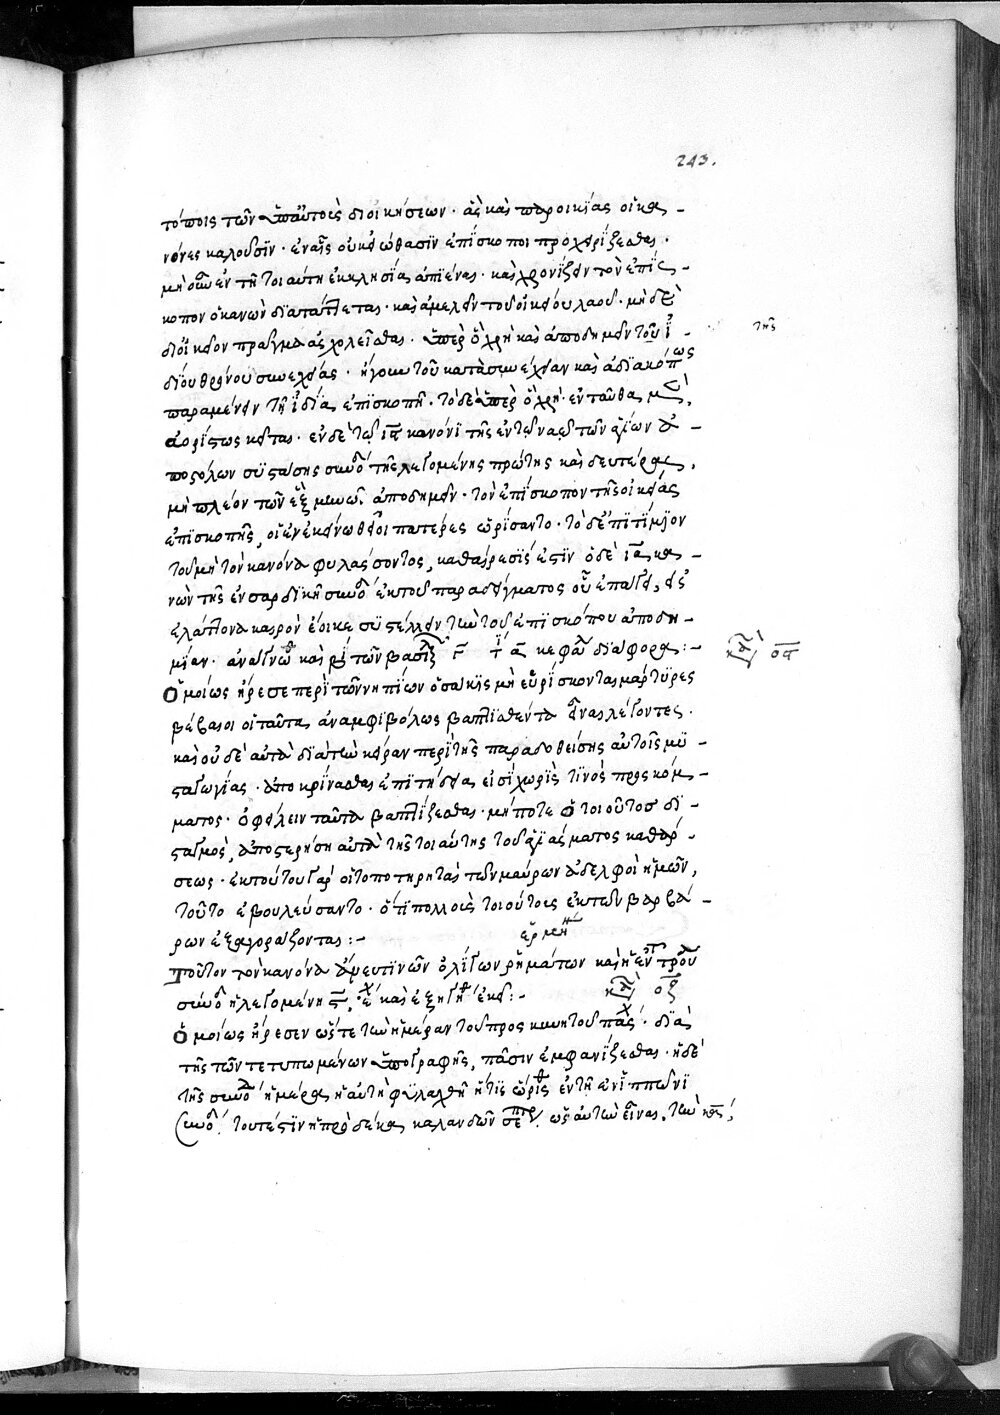 243.
τόποις τῶν ὑπ' αὐτοὺς διοικήσεων· ἃς καὶ παροικίας οἱ κα-
νόνες καλοῦσϊν· ἐν αἷς οὐκ εἰώθασϊν ἐπίσκοποι προχειρίζεσθαι·
μὴ οὖν ἐν τῆ τοιαύτη ἐκκλησία ἀπϊέναι· καὶ χρονίζειν τὸν ἐπίσ-
κοπον ὁ κανὼν διατάττεται· καὶ ἀμελεῖν τοῦ οἰκείου λαοῦ· μὴ δὲ
δι' οἰκεῖον πρᾶγμα ἀσχολεῖσθαι· ὑπὲρ ὃ χρὴ καὶ ἀποδημεῖν τοῦ ἰ-
τῆς
δίου θρόνου συνεχείας· ἤγουν τοῦ κατὰ συνέχειαν καὶ ἀδιακόπως
παραμένειν τῆ ἰδία ἐπισκοπῆ· τὸ δὲ ὑπὲρ ὃ χρὴ· ἐνταῦθα μὲν
ἀορίστως κεῖται· ἐν δὲ τῷ ια κανόνι τῆς ἐν τῷ ναῷ τῶν ἁγίων ἀ-
ποστόλων συστάσης συνόδου τῆς λεγομένης πρώτης καὶ δευτέρας,
μὴ πλέον τῶν ἓξ μηνῶν ἀποδημεῖν· τὸν ἐπίσκοπον τῆς οἰκείας
ἐπισκοπῆς, οἱ ἐν ἐκείνω θεῖοι πατέρες ὡρίσαντο· τὸ δὲ ἐπιτίμϊον
τοῦ μὴ τὸν κανόνα φυλάσσοντος, καθαίρεσίς ἐστϊν ὁ δὲ ια κα-
νὼν τῆς ἐν σαρδικῆ συνόδου ἐκ τοῦ παραδείγματος οὗ ἐπάγει, εἰς
ἐλάττονα καιρὸν ἔοικε συστέλλειν τὴν τοῦ ἐπισκόπου ἀποδη-
μίαν· κεφα διάφορα:-
κε οα
Ὁμοίως ἤρεσε περὶ τῶν νηπίων ὁσάκις μὴ εὑρίσκονται μάρτυρες
βέβαιοι οἱ ταῦτα ἀναμφιβόλως βαπτισθέντα εἶναι λέγοντες·
καὶ οὐδὲ αὐτὰ διὰ τὴν περὶ τῆς παραδοθείσης αὐτοῖς μυ-
σταγωγίας· ἀποκρίνασθαι ἐπιτήδεια εἰσὶ χωρὶς τινὸς προσκόμ-
ματος· ὀφείλειν ταῦτα βαπτίζεσθαι· μήποτε ὁ τοιοῦτος δι-
σταγμὸς, ἀποστερήση αὐτὰ τῆς τοιαύτης τοῦ ἁγιάσματος καθάρ-
σεως· ἐκ τούτου γὰρ οἱ τοποτηρηταὶ τῶν μαύρων ἀδελφοὶ ἡμῶν,
τοῦτο ἐβουλεύσαντο· ὅτι πολλοὺς τοιούτους ἐκ τῶν βαρβά-
ρων ἐξαγοράζονται:-
ἑρμην
Τοῦτον τὸν κανόνα ἄνευ τινῶν ὀλίγων ῥημάτων καὶ ἡ ἐν τρού
συνόδου ἡ λεγομένη ϛ ἔχει καὶ ἐξηγήθη ἐκεῖ:-
κε οβ
Ὁμοίως ἤρεσεν ὥστε τὴν ἡμέραν τοῦ προσκυνητοῦ πάσχα· διὰ
τῆς τῶν τετυπωμένων ὑπογραφῆς, πᾶσιν ἐμφανίζεσθαι· ἡ δὲ
τῆς συνόδου ἡμέρα ἡ αὐτὴ φυλαχθῆ ἥτις ὡρίσθη ἐν τῆ ἐν ἱππῶνι
συνόδω. τουτέστιν ἡ πρὸ δέκα καλανδῶν σεπτεβ. ὡς αὐτὴν εἶναι, τὴν κα